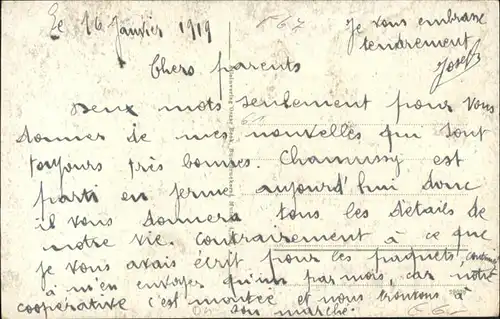 Le 16 Janvier 1919
Je vous embrasse
tendrement
Josef
Chers parents
Deux mots seulement pour vous
donner de mes nouvelles qui sont
toujours très bonnes. Chamussy est
parti en perme aujourd'hui donc
il vous donnera tous les détails de
notre vie. Contrairement à ce que
je vous avais écrit pour les paquets, continuez
à m'en envoyer qu'un par mois, car notre
coopérative c'est montée et nous trouvons à
bon marché.